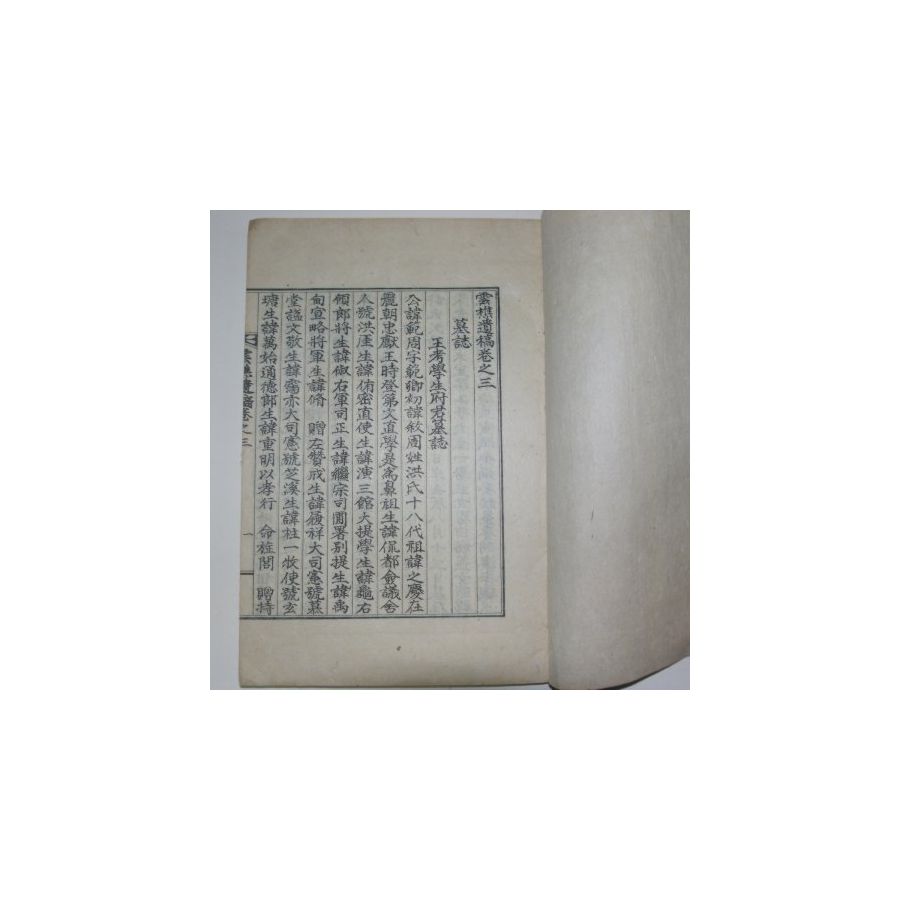 雲樵遺稿卷之三
墓誌
王考學生府君墓誌
公諱範周字範卿初諱敘周姓洪氏十八代祖諱之慶在
麗朝忠獻王時登第文直學是爲鼻祖生諱侃都僉議舍
人號洪厓生諱侑密直使生諱演三館大提學生諱龜右
領郎將生諱俶右軍司正生諱繼宗司圃署別提生諱禹
甸宣略將軍生諱脩 贈左贊成生諱履祥大司憲號慕
堂諡文敬生諱霶亦大司憲號芝溪生諱柱一牧使號玄
塘生諱萬始通德郎生諱重明以孝行 命旌閭 贈持
雲樵遺稿卷之三
一